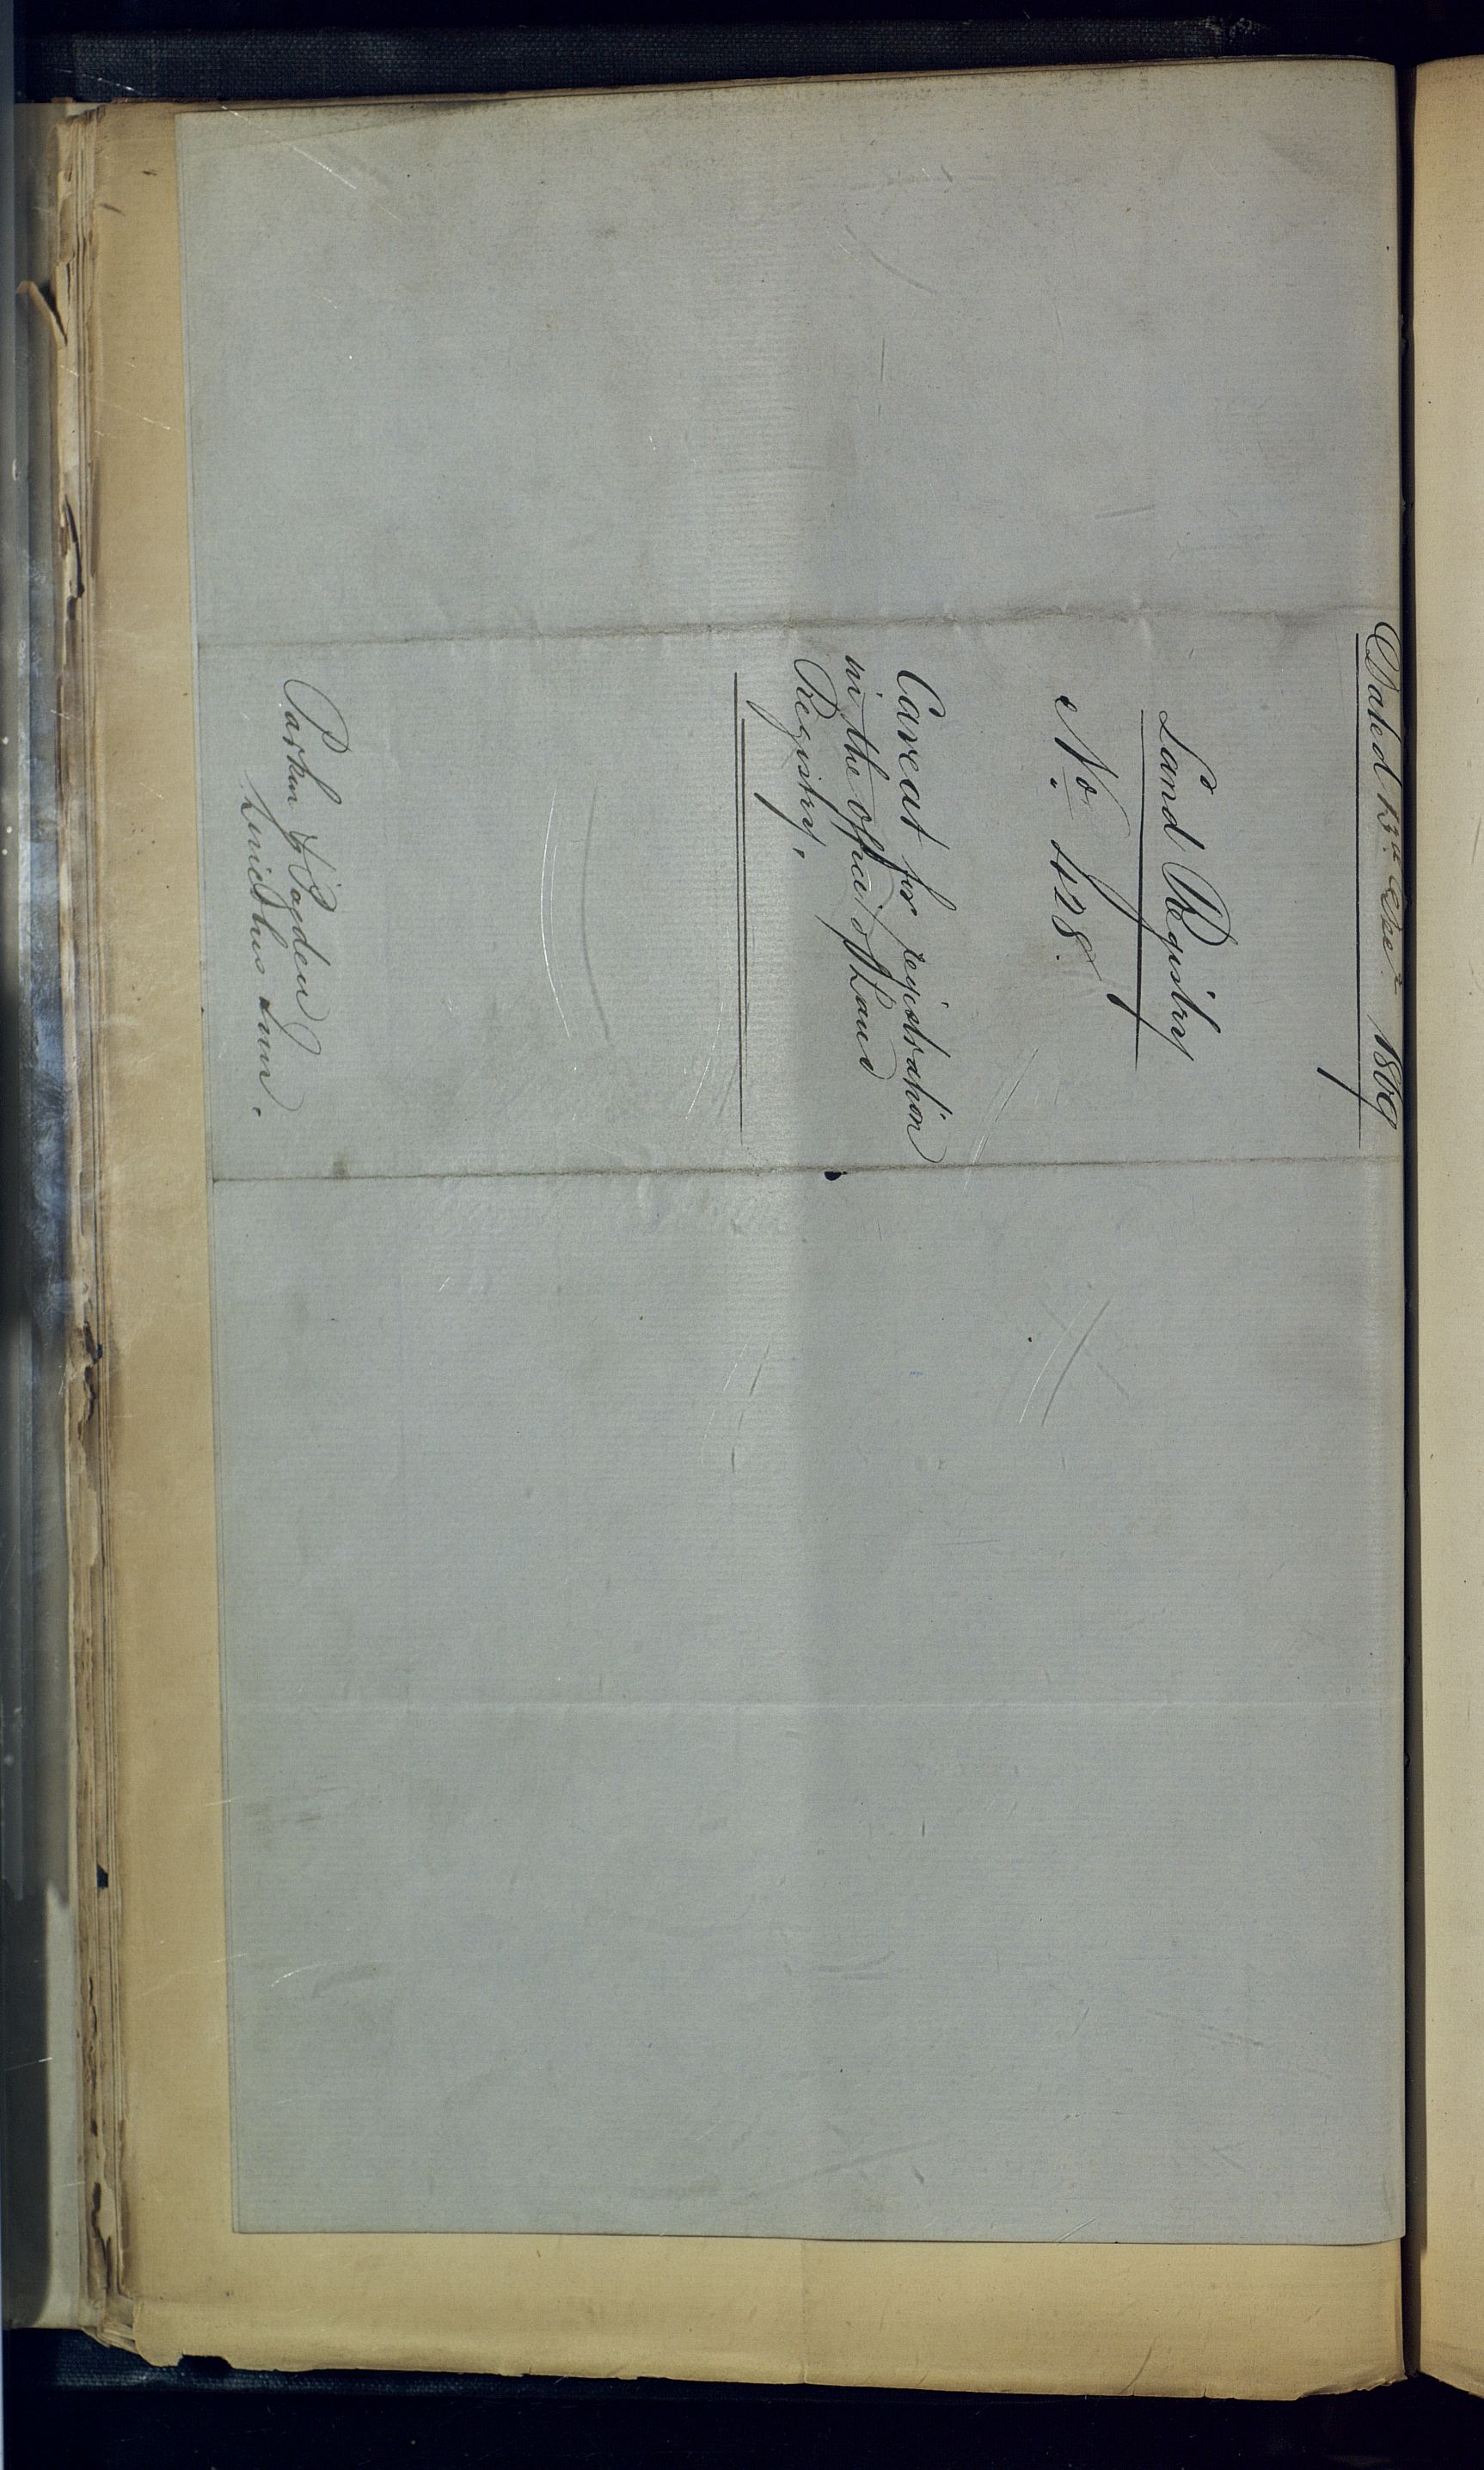 Dated 13th 1869
Land Registry
No. 428.
Caveat for registration
in the office of Land
Registry.
Parker & Pagden